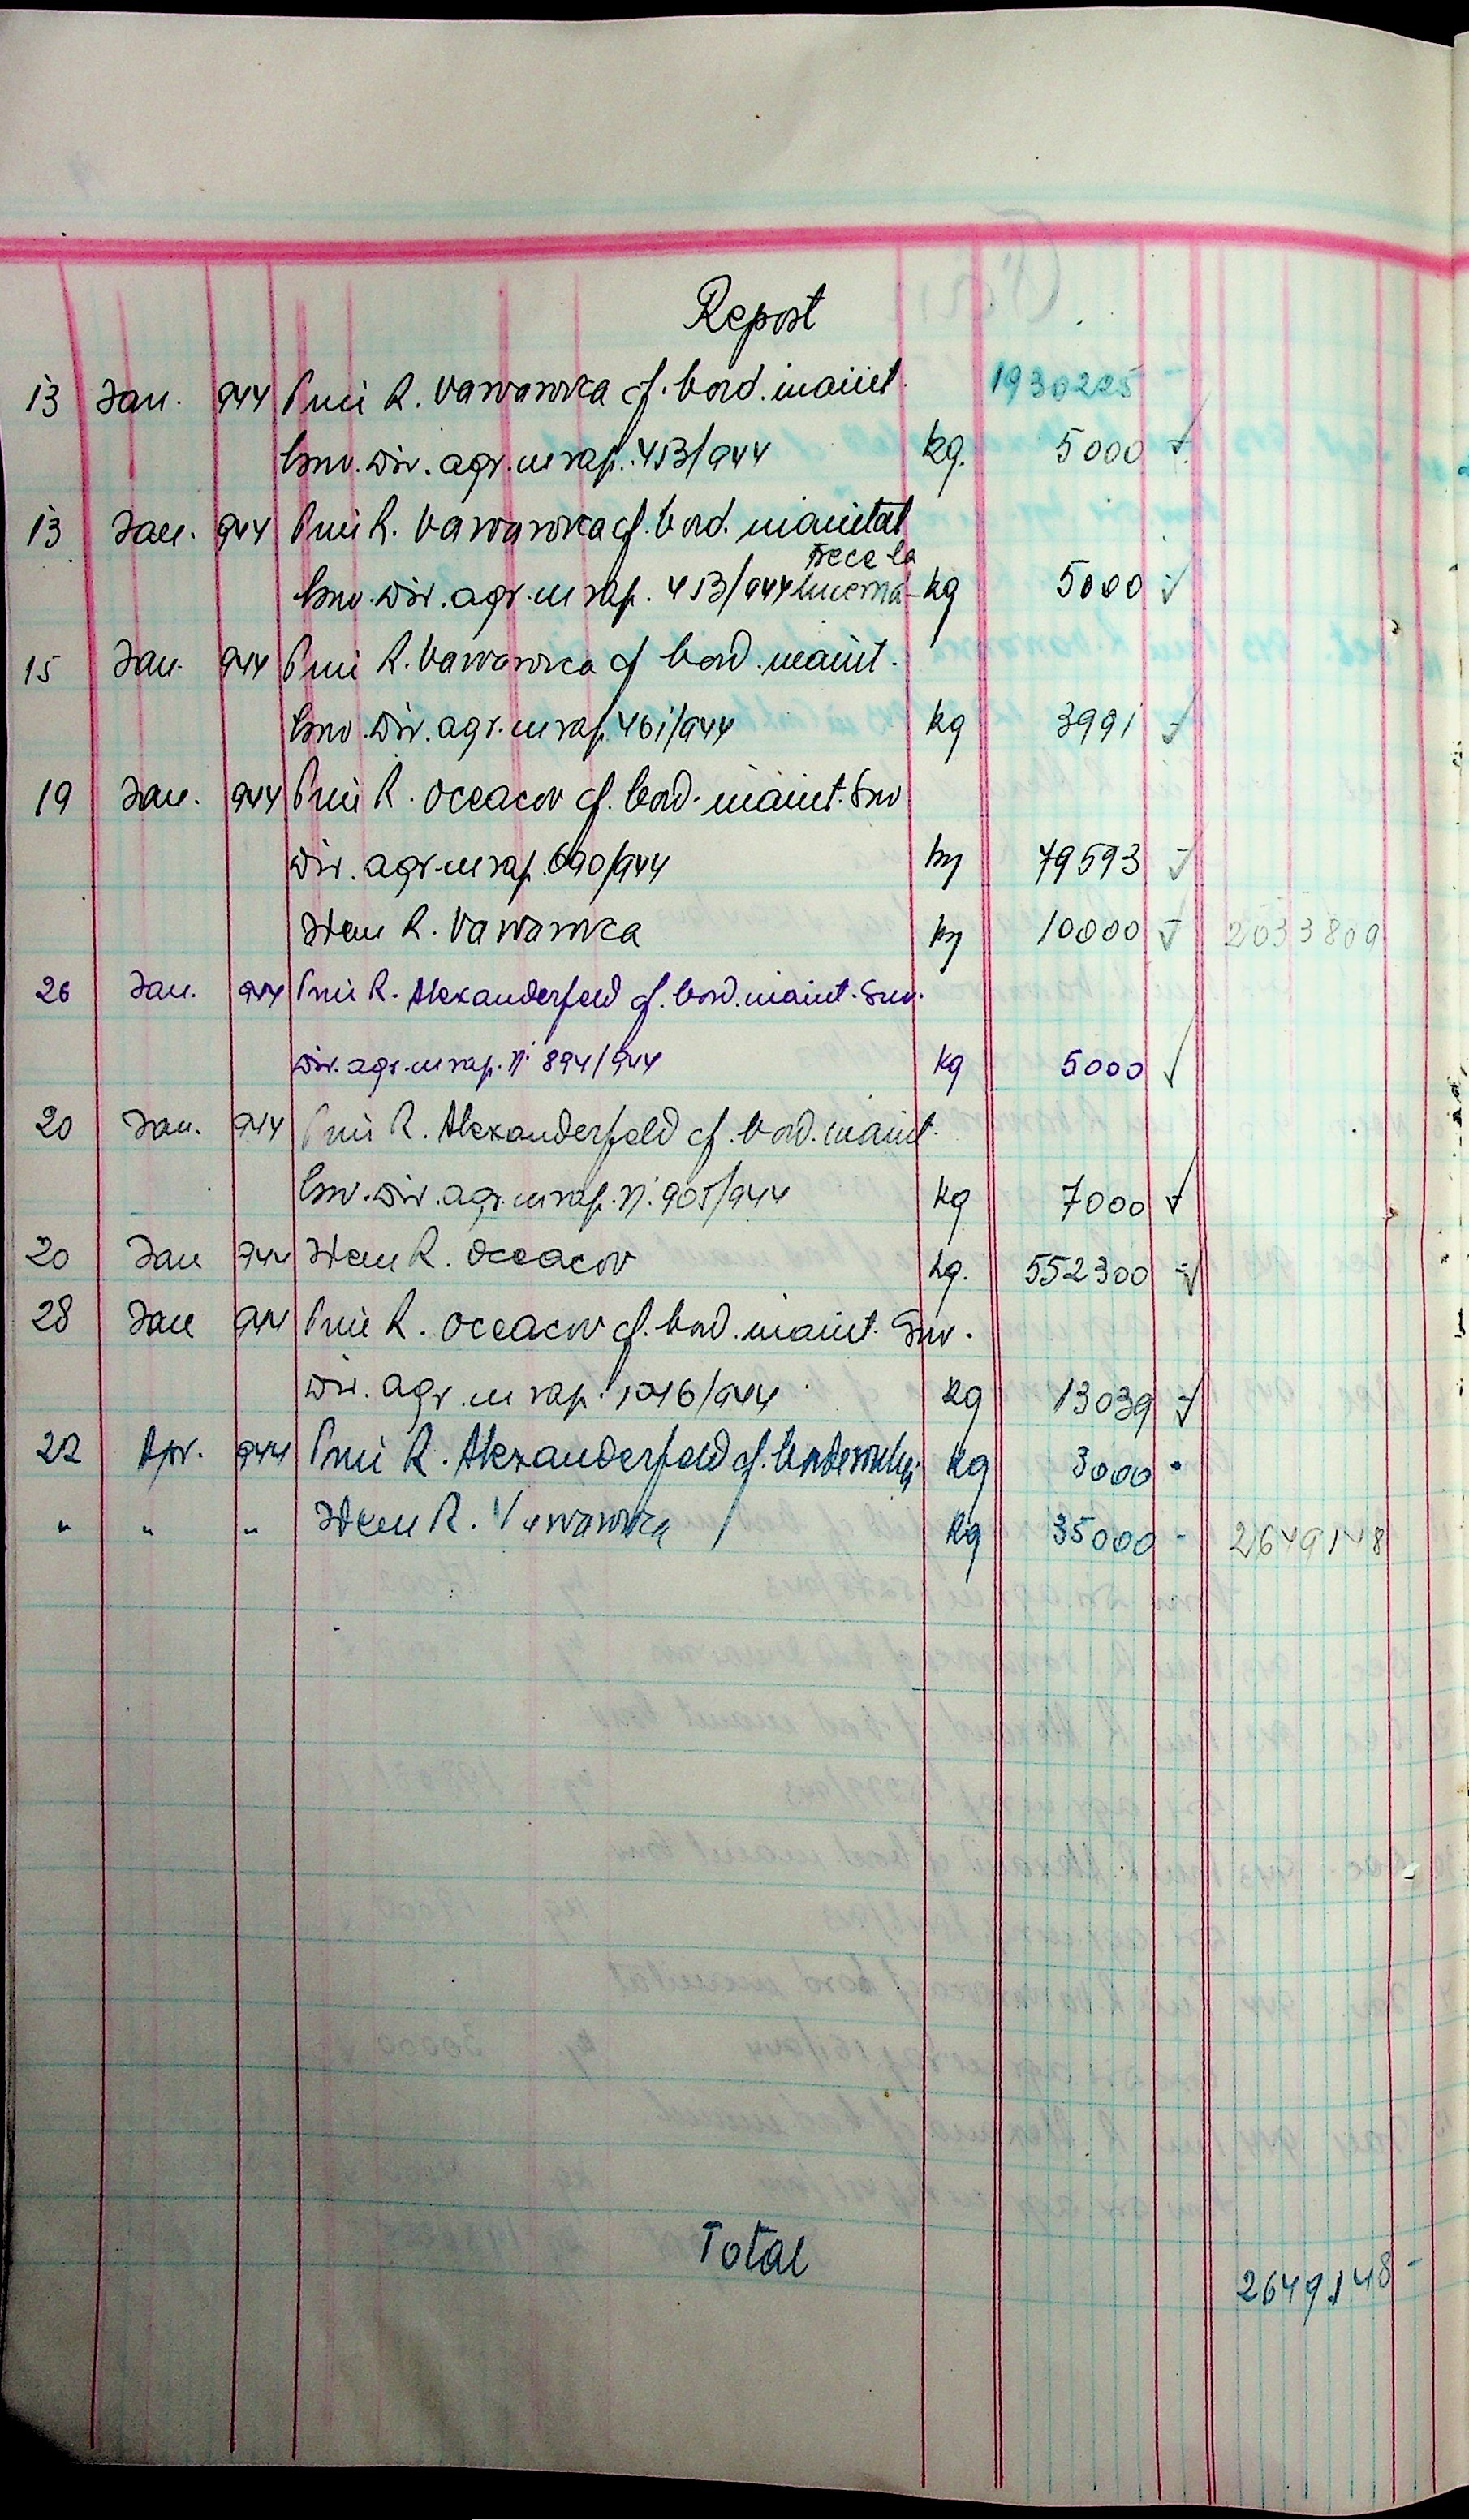 Report
1930225 -
13 Jan. 944 Prin R. Varvarovca cf. bord. inaint.
Serv. Dir. agr. cu rap. 453/944 kg. 5000
13 Jan. 944 Prin R. Varvarovca cf. bord. inaintat
trece la
Serv. Dir. agr. cu rap. 453/944 kg 5000
15 Jan. 944 Prin R. Varvarovca cf bord. inaint.
Serv. Dir. agr. cu rap. 461/944 kg 3991
19 Jan. 944 Prin R. Oceacov cf. bord. inaint. Serv
Dir. agr. cu rap. 690/944 kg 79593
Idem R. Varvarovca kg 10000 2033809
26 Jan. 944 Prin R. Alexanderfeld cf. bord. inaint. Serv.
Dir. agr. cu rap. N. 894/944 kg 5000
20 Jan. 944 Prin R. Alexanderfeld cf. bord. inaint.
Serv. Dir. agr. cu rap. N. 905/944 kg 7000
20 Jan 944 Idem R. Oceacov kg. 552300
28 Jan 944 Prin R. Oceacov cf. bord. inaint. Serv.
Dir. agr. cu rap. 1046/944 kg 13039
22 Apr. 944 Prin R. Alexanderfeld cf. kg 3000
" " " Idem R. Varvarovca kg 35000 - 2649148
Total
2649148 -